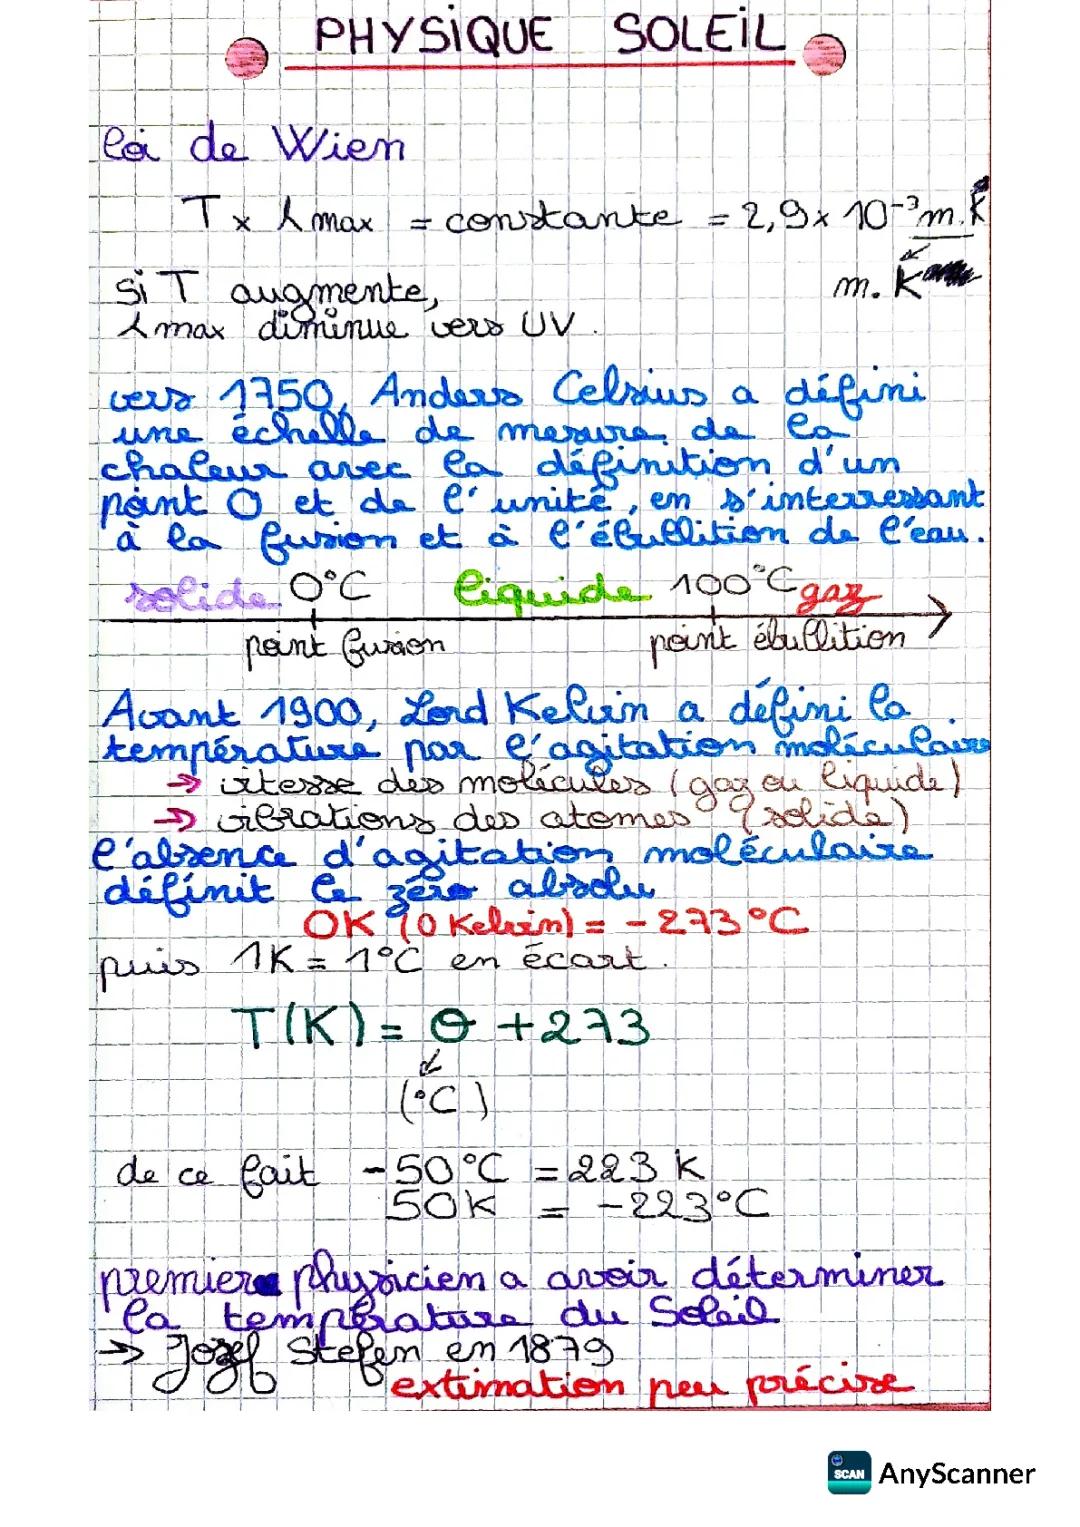 PHYSIQUE SOLEIL
loi de Wien
T x λmax = constante = 2,9 x 10⁻³ m.K
m. K
si T augmente,
λmax diminue vers UV.
vers 1750, Anders Celsius a défini
une échelle de mesure de la
chaleur avec la définition d'un
point 0 et de l'unité, en s'interressant
à la fusion et à l'ébullition de l'eau.
solide 0°C liquide 100°C gaz
point fusion point ébullition
Avant 1900, Lord Kelvin a défini la
température par l'agitation moléculaire
→ vitesse des molécules (gaz ou liquide)
→ vibrations des atomes (solide)
l'absence d'agitation moléculaire
définit le zéro absolu
0K (0 Kelvin) = -273°C
puis 1K = 1°C en écart.
T(K) = θ + 273
(°C)
de ce fait -50°C = 223 K
50K = -223°C
premier physicien a avoir déterminer
la température du Soleil
→ Jozef Stefen en 1879
extimation peu précise
SCAN AnyScanner